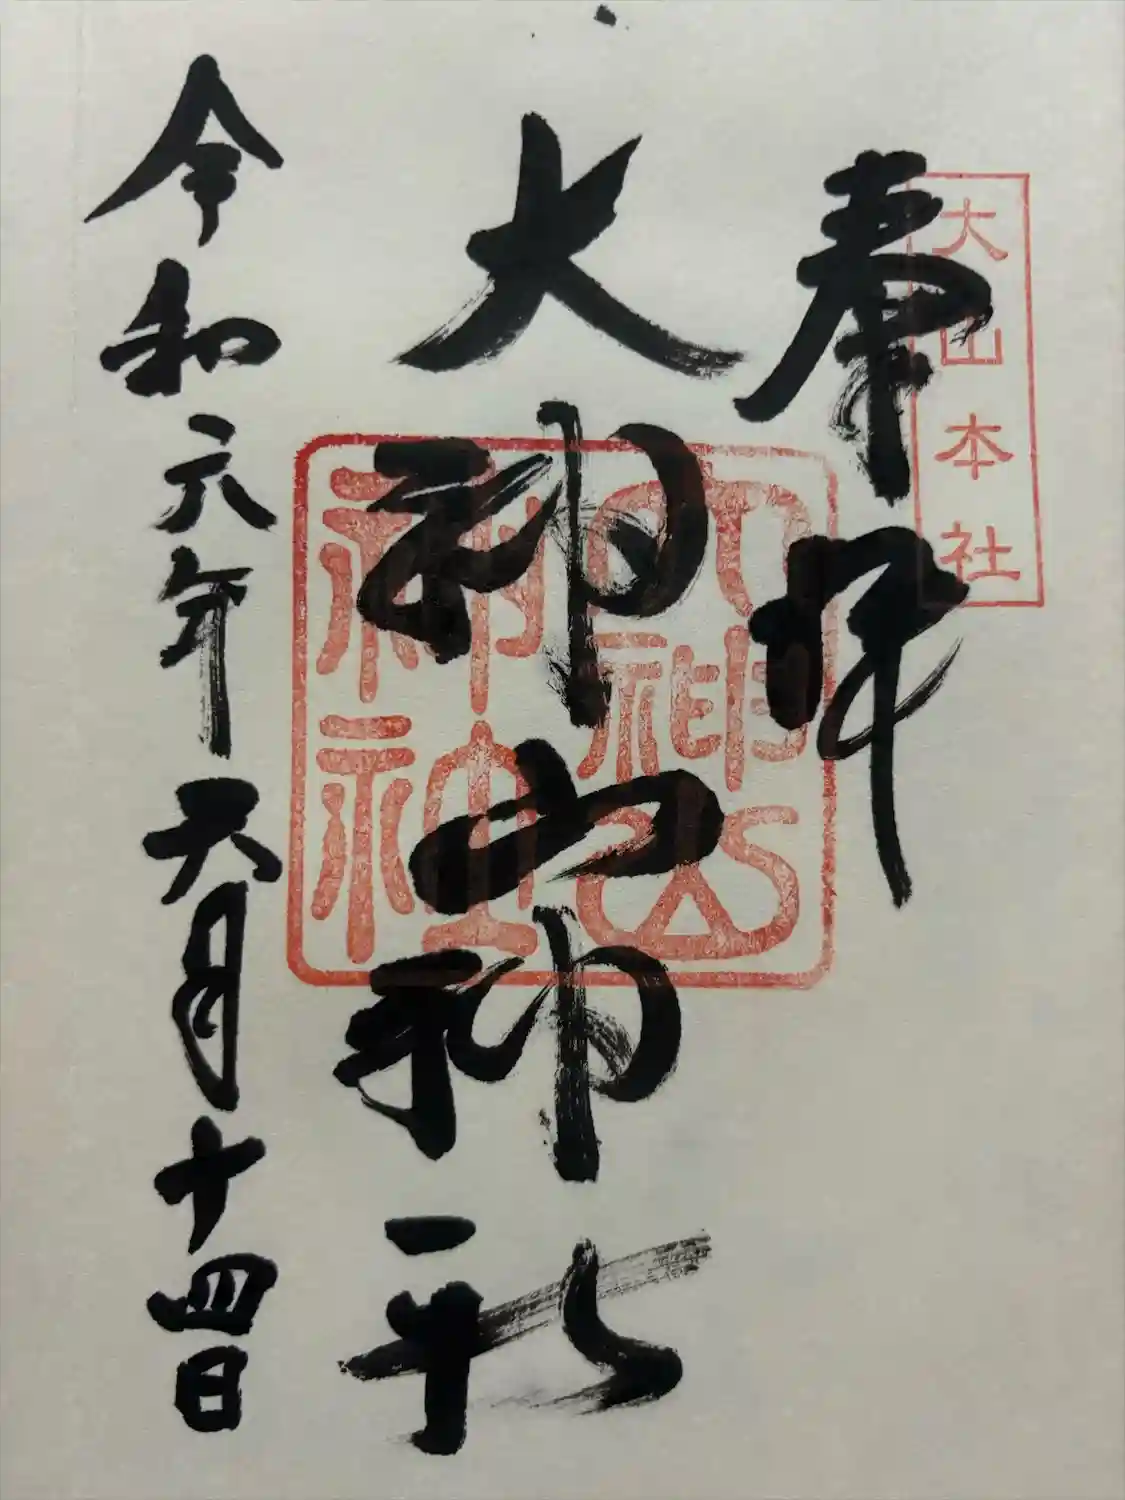 奉拝
大山本社
大神山神社
大神山神社
令和六年六月十四日